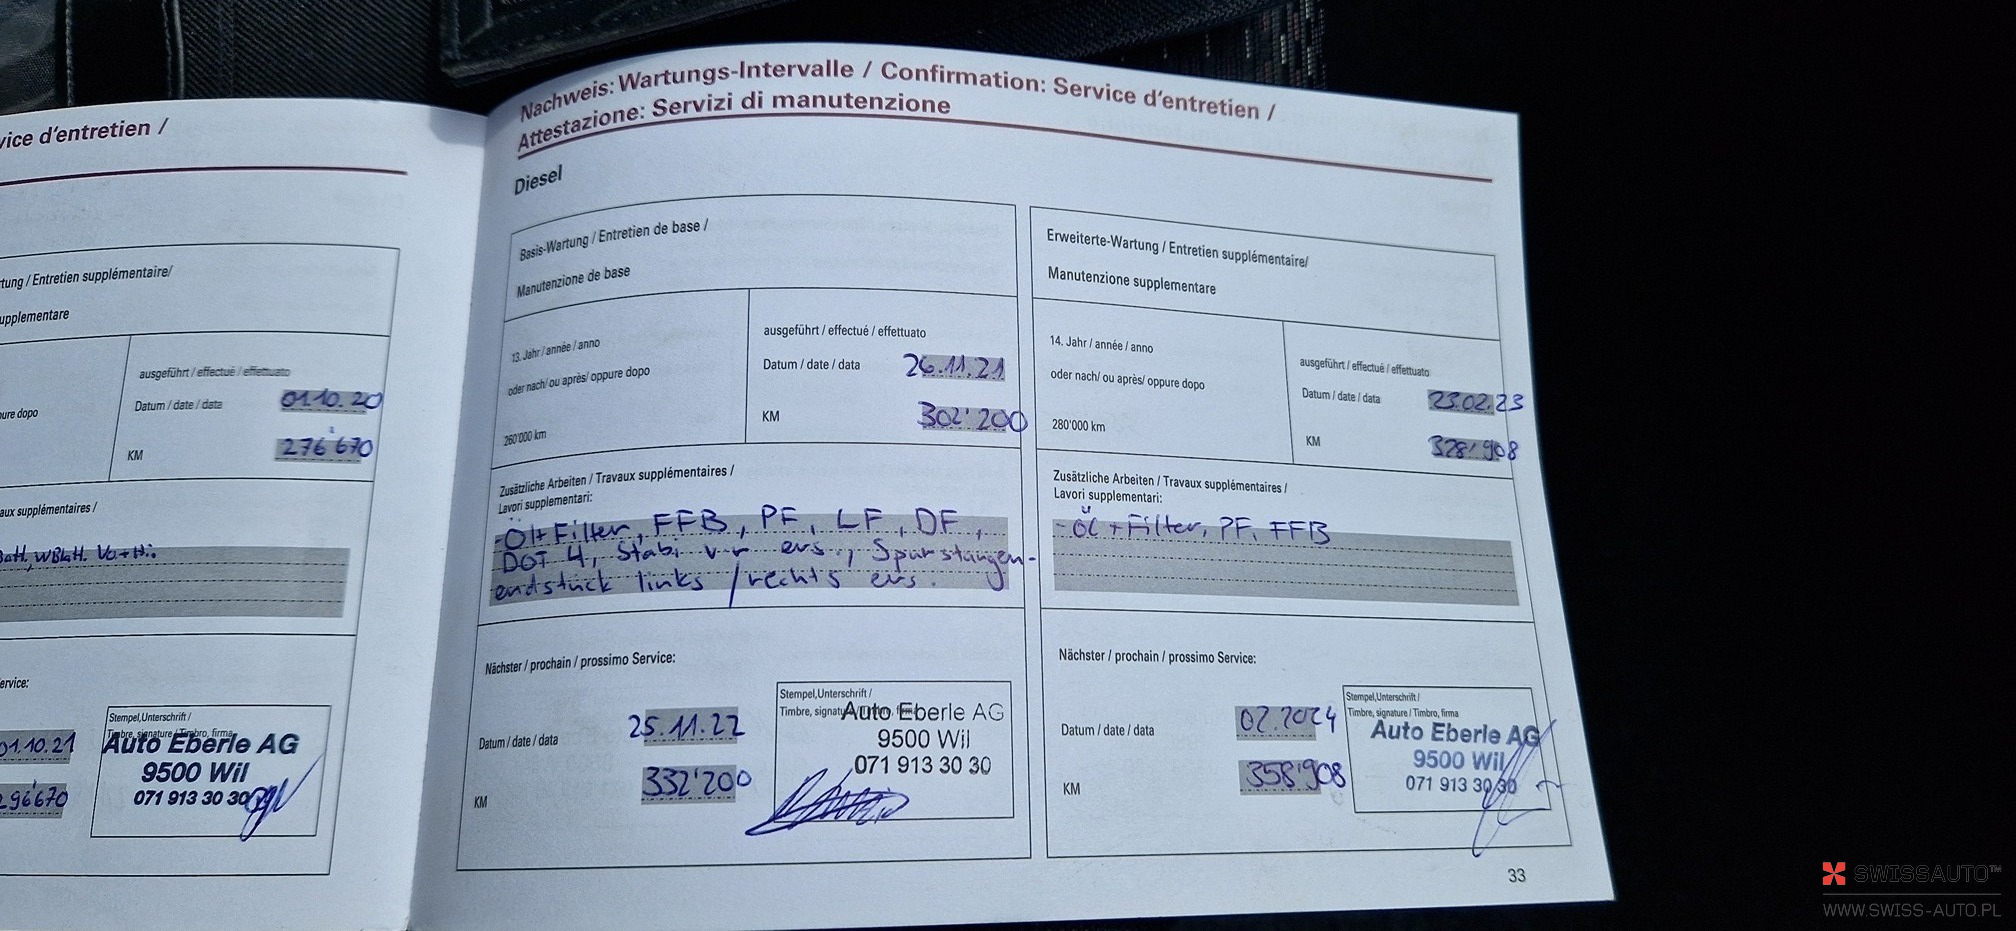 vice d'entretien /
tung / Entretien supplémentaire/
supplementare
ausgeführt / effectué / effettuato
pure dopo
Datum / date / data 01.10.20
KM 276'670
aux supplémentaires /
Batt., WBlatt. Vo+Hi.
Service:
01.10.21
296'670
Stempel,Unterschrift /
Timbre, signature / Timbro, firma
Auto Eberle AG
9500 Wil
071 913 30 30
Nachweis: Wartungs-Intervalle / Confirmation: Service d'entretien /
Attestazione: Servizi di manutenzione
Diesel
Basis-Wartung / Entretien de base /
Manutenzione de base
13. Jahr / année / anno
oder nach/ ou après/ oppure dopo
260'000 km
ausgeführt / effectué / effettuato
Datum / date / data 26.11.21
KM 302'200
Zusätzliche Arbeiten / Travaux supplémentaires /
Lavori supplementari:
-Öl+Filter, FFB, PF, LF, DF,
DOT 4, Stab. v-r ers., Spurstangen-
endstück links / rechts ers.
Nächster / prochain / prossimo Service:
Datum / date / data 25.11.22
KM 332'200
Stempel,Unterschrift /
Timbre, signature / Timbro, firma
Auto Eberle AG
9500 Wil
071 913 30 30
Erweiterte-Wartung / Entretien supplémentaire/
Manutenzione supplementare
14. Jahr / année / anno
oder nach/ ou après/ oppure dopo
280'000 km
ausgeführt / effectué / effettuato
Datum / date / data 23.02.23
KM 328'908
Zusätzliche Arbeiten / Travaux supplémentaires /
Lavori supplementari:
-Öl + Filter, PF, FFB
Nächster / prochain / prossimo Service:
Datum / date / data 02.2024
KM 358'908
Stempel,Unterschrift /
Timbre, signature / Timbro, firma
Auto Eberle AG
9500 Wil
071 913 30 30
33
SWISSAUTO™
WWW.SWISS-AUTO.PL